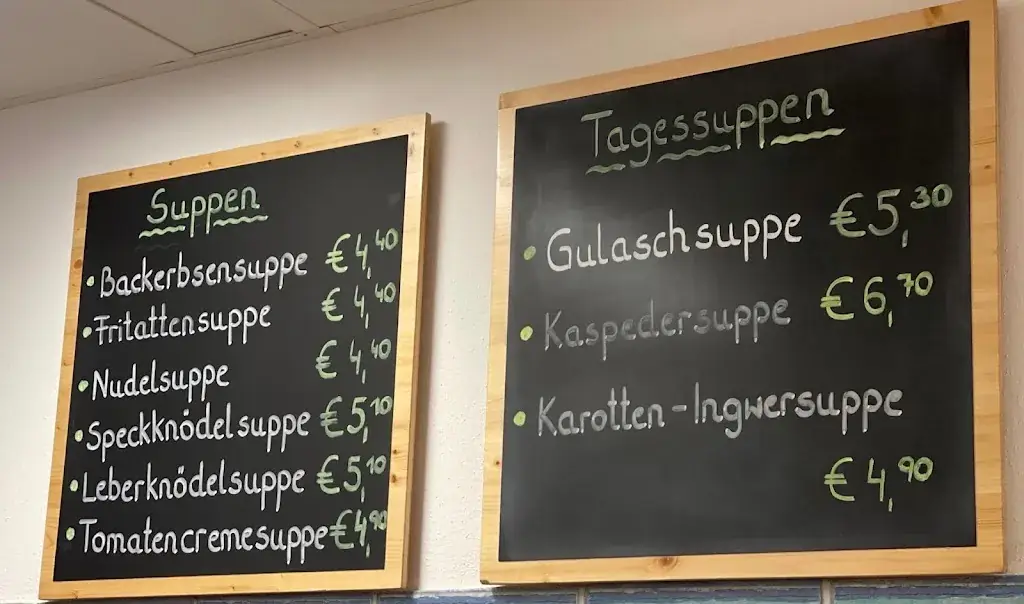 Suppen
• Backerbsensuppe € 4,40
• Fritattensuppe € 4,40
• Nudelsuppe € 4,40
• Speckknödelsuppe € 5,10
• Leberknödelsuppe € 5,10
• Tomatencremesuppe € 4,90
Tagessuppen
• Gulaschsuppe € 5,30
• Kaspedersuppe € 6,70
• Karotten-Ingwersuppe
€ 4,90